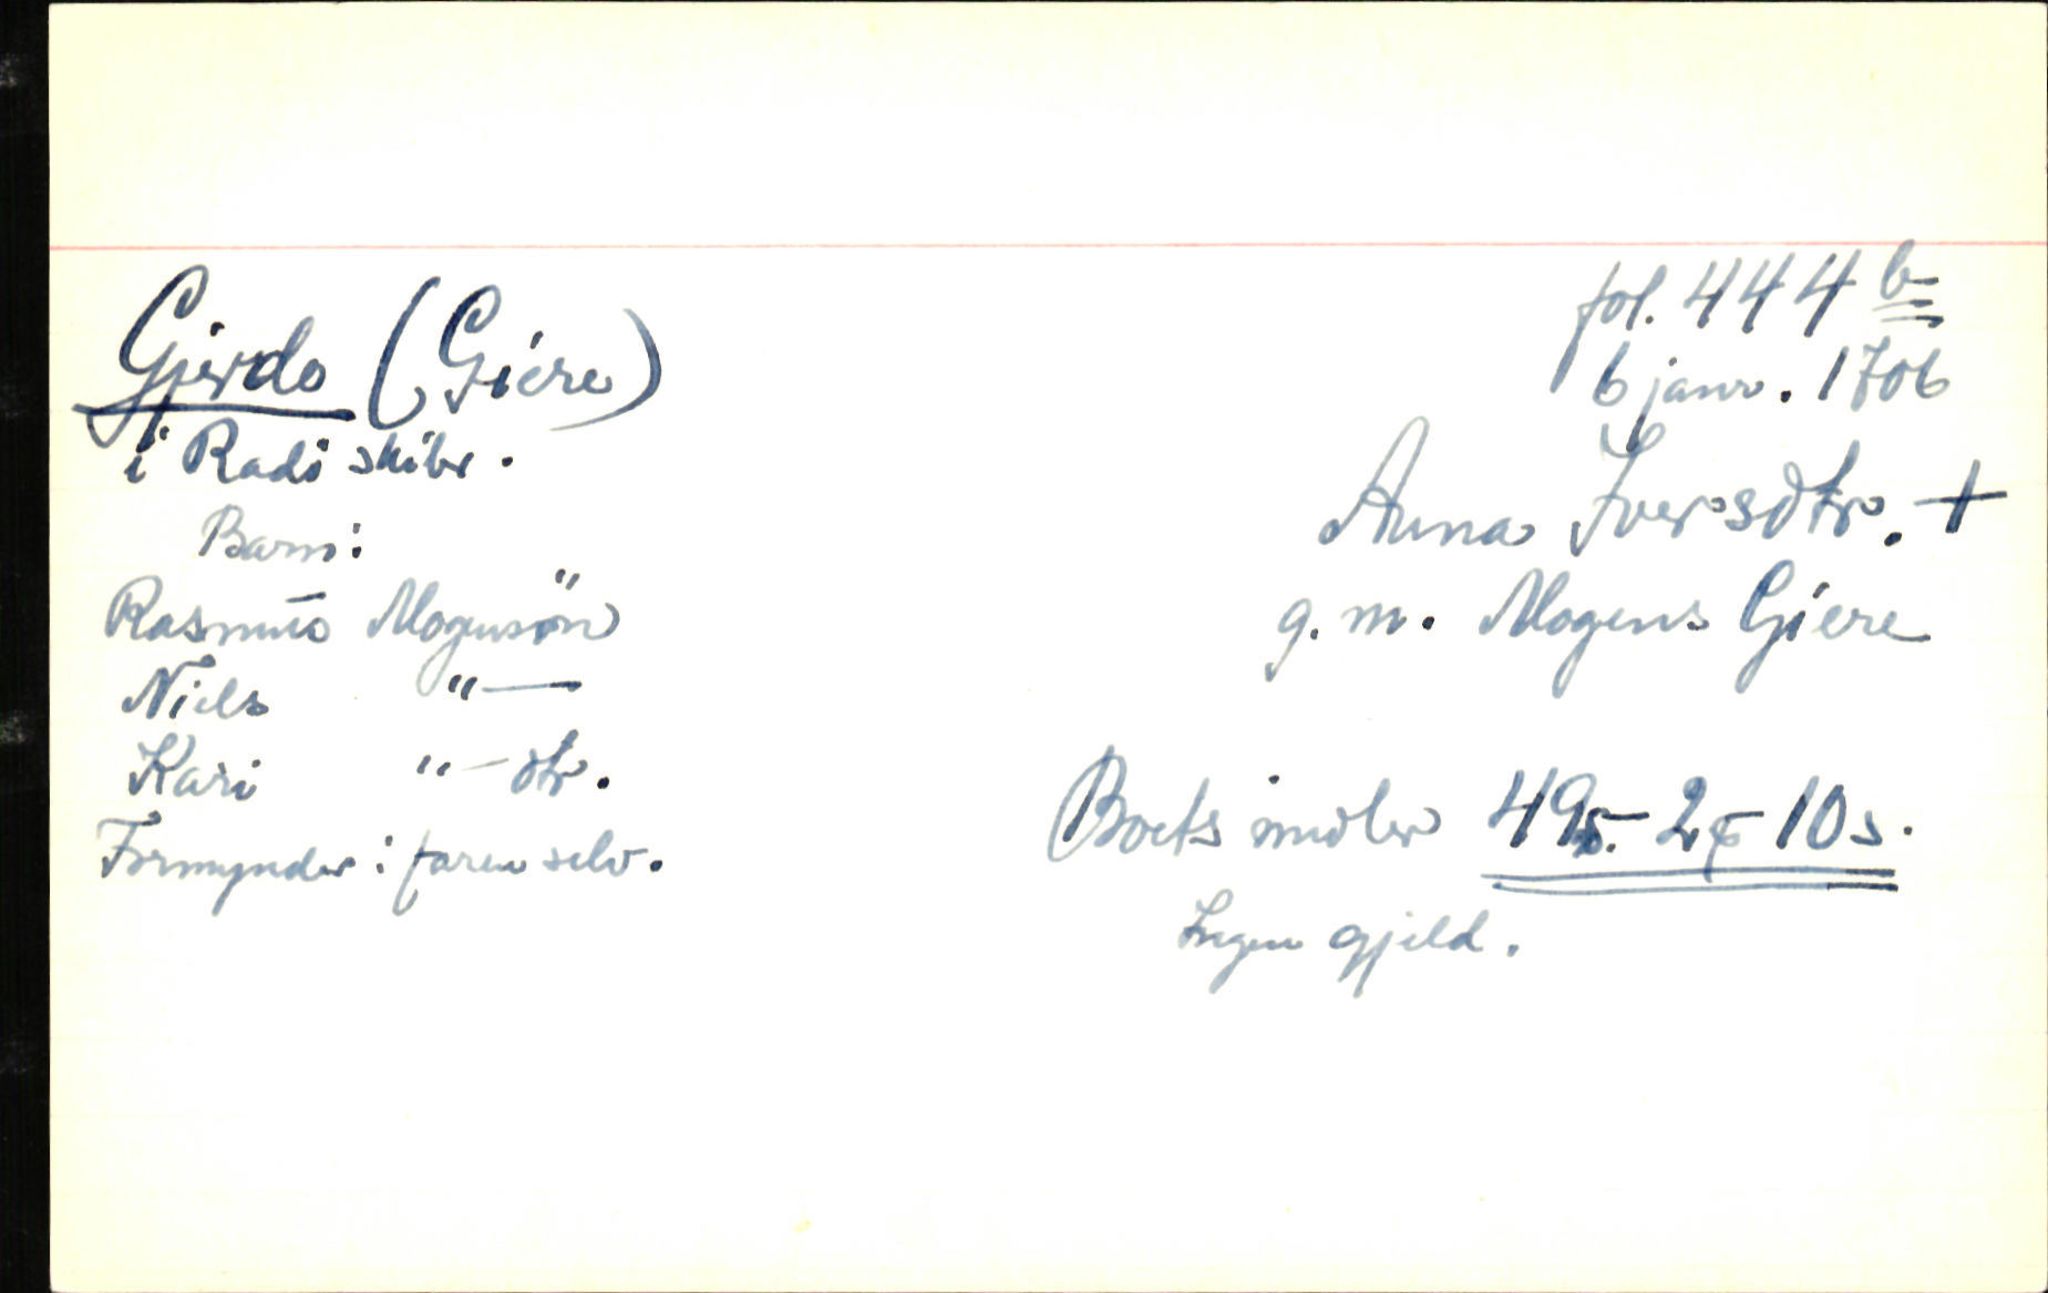 Gjerde (Giere)
i Radö skibr.
Barn:
Rasmus Mogensön
Niels "—
Kari "— dtr.
Formynder: faren selv.
fol. 444 b
6 janr. 1706
Anna Iversdtr. +
g. m. Mogens Giere
Boets midler 49 - 2 - 10 s.
Ingen gjeld.